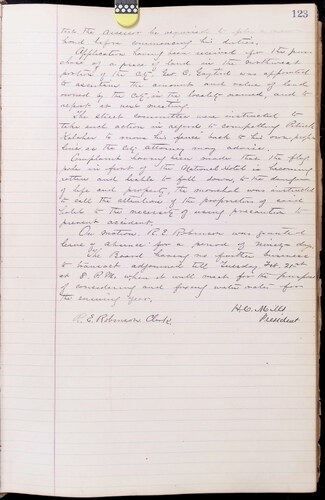 123
that the Assessor be required to file a new
bond before commencing his duties.
Application having been received for the pur-
chase of a piece of land in the northwest
portion of the City, Geo. C. was appointed
to ascertain the amount and value of land
owned by the City in the locality named, and to
report at next meeting.
The street committee were instructed to
take such action in regards to compelling Patrick
Kelcher to move his fence back to his own proper
line as the City Attorney may advise.
Complaint having been made that the flag
pole in front of the National Hotel is becoming
rotten and liable to fall down, to the danger
of life and property, the marshal was instructed
to call the attention of the proprietor of said
hotel to the necessity of using precaution to
prevent accident.
On motion R. E. Robinson was granted
leave of absence for a period of ninety days.
The Board having no further business
to transact adjourned till Tuesday Feb. 21st
at 8. P.M. when it will meet for the purpose
of considering and fixing water rates for
the ensuing year.
H. C. Mills
President
R. E. Robinson Clerk